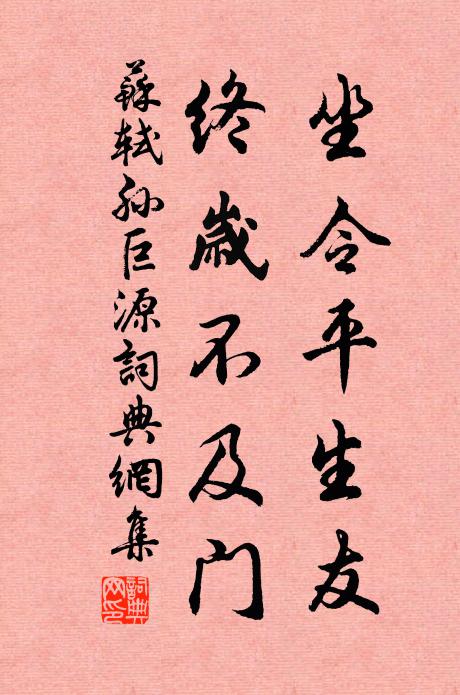 坐令平生友
終歲不及门
蘇軾孙巨源詞典網集
詞典網印